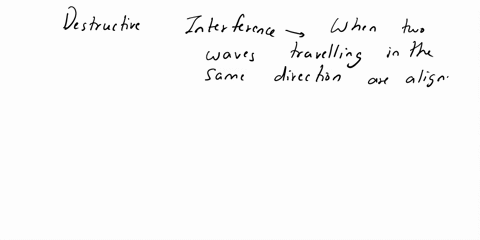 Destructive Interference → When two
waves travelling in the
same direction are align.